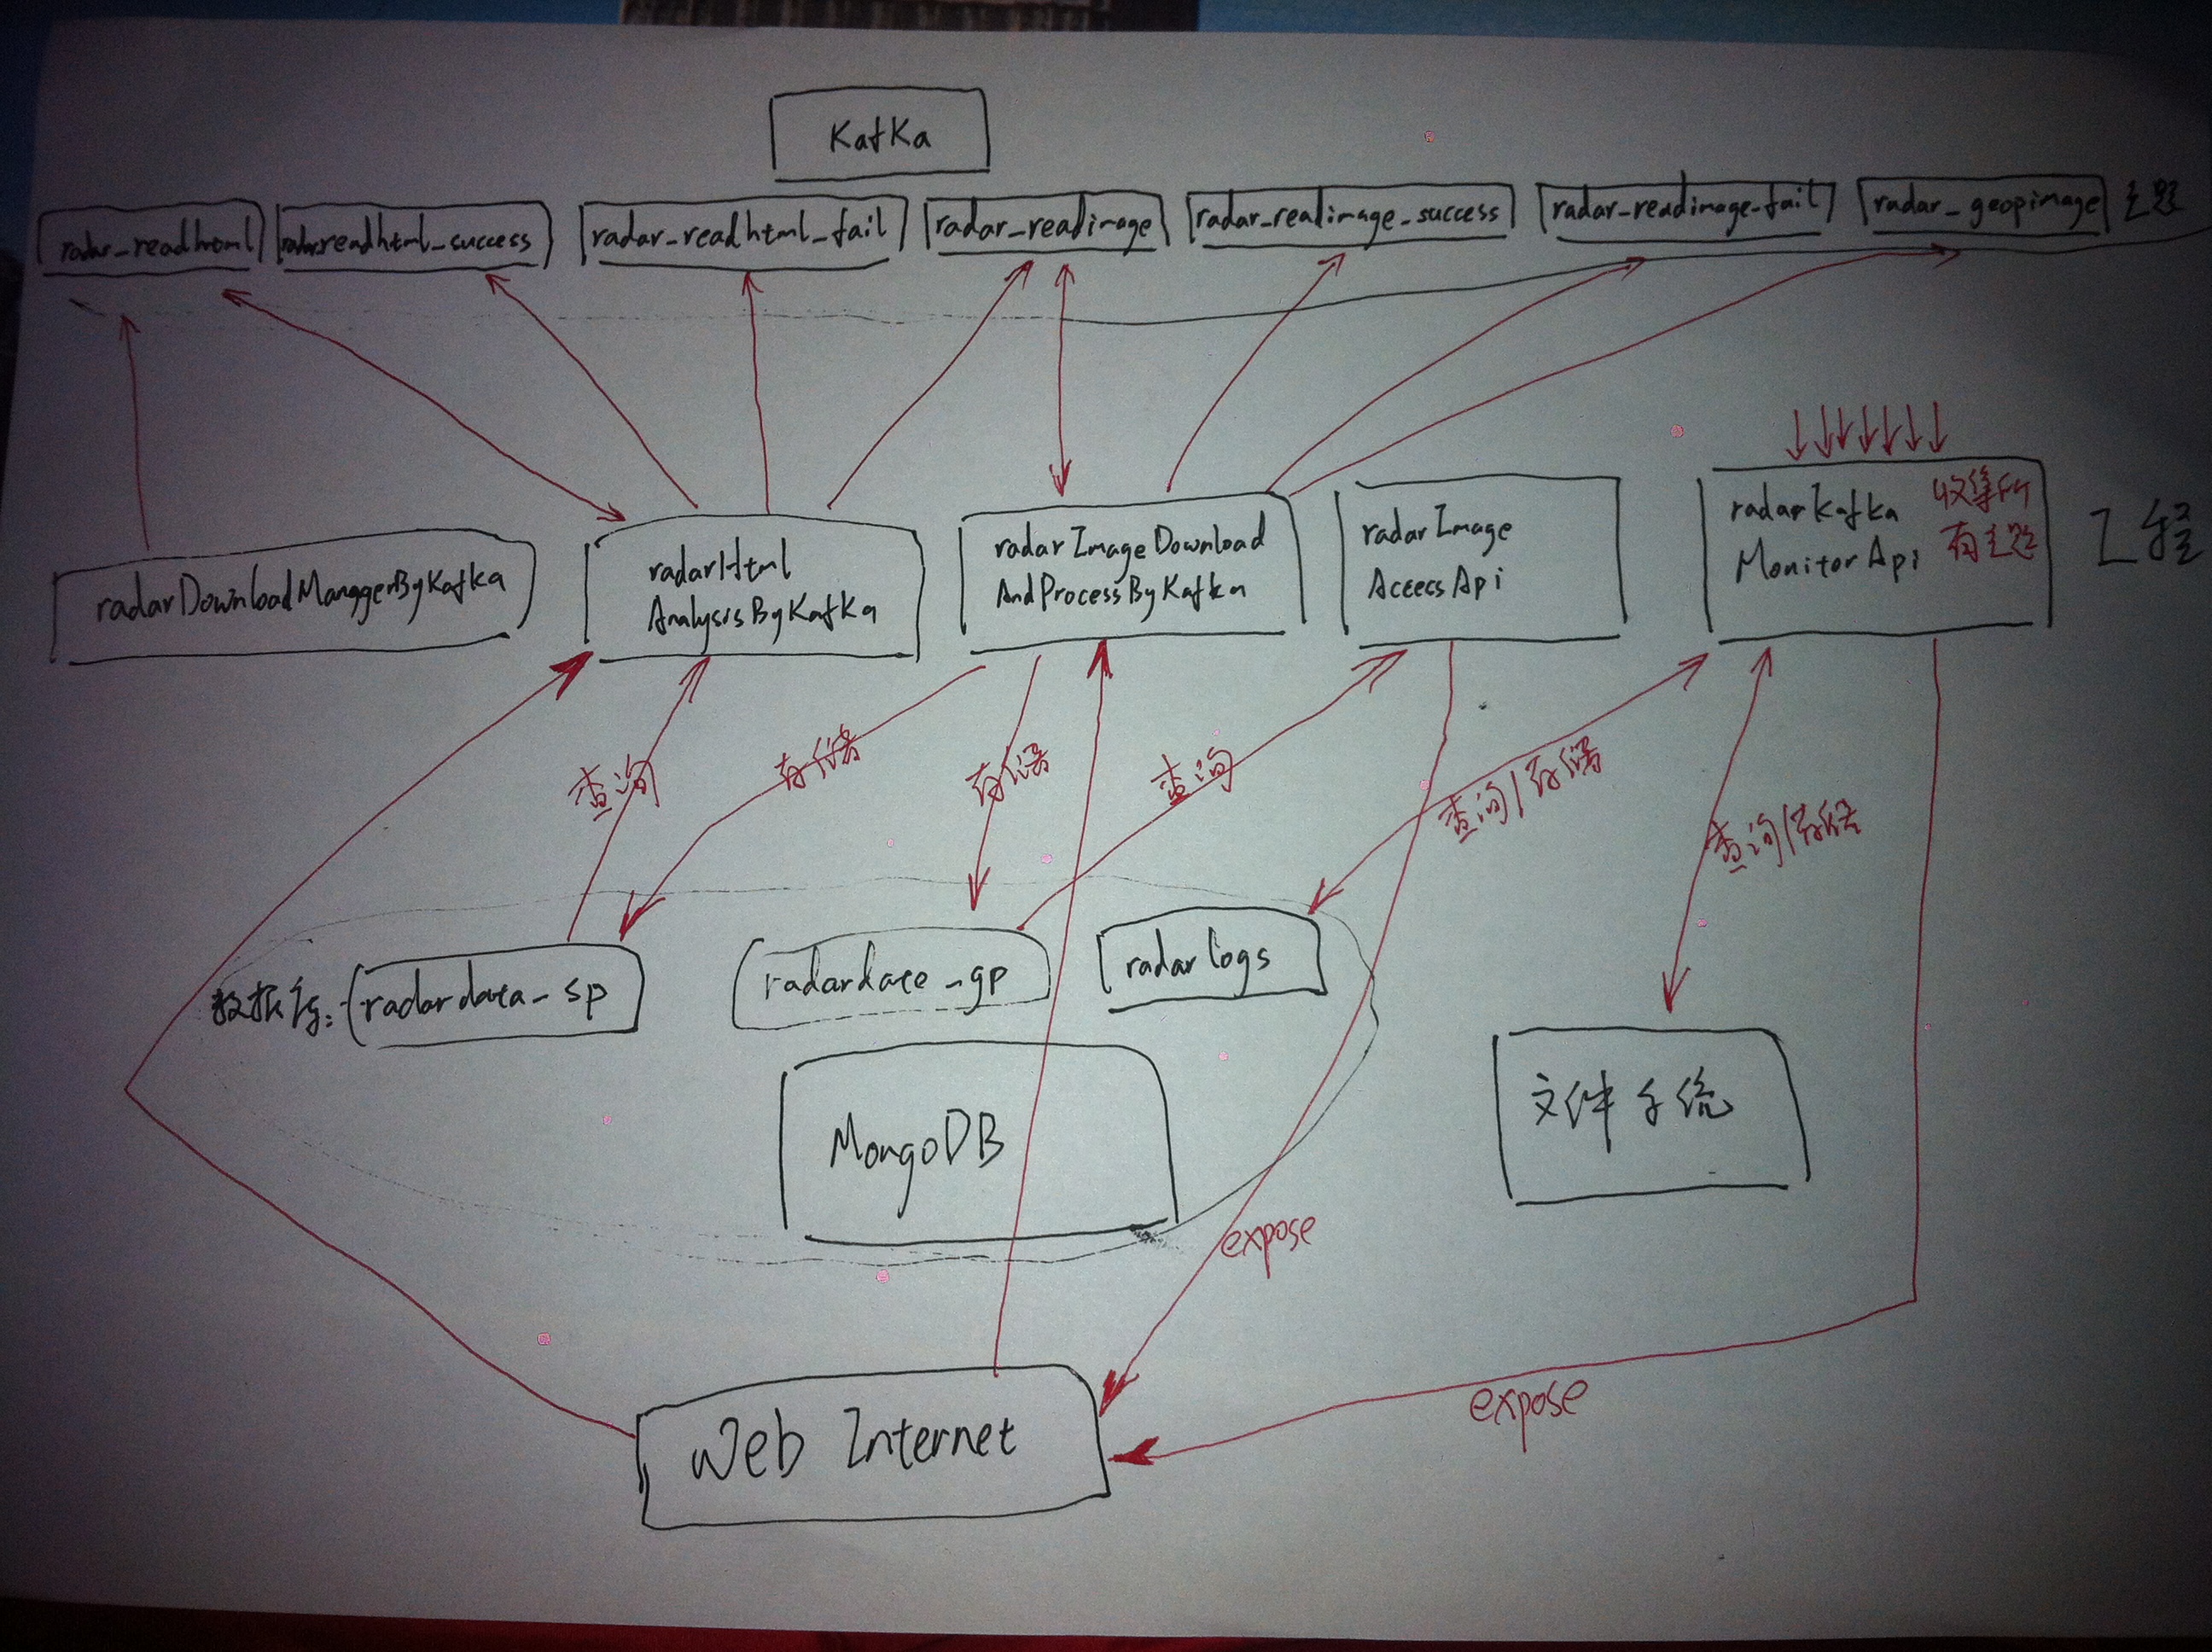 KafKa
radar_readhtml
radar_readhtml_success
radar_readhtml_fail
radar_readimage
radar_readimage_success
radar_readimage_fail
radar_geopimage
主题
radarDownloadManggerByKafka
radarHtml
AnalysisByKafKa
radarImageDownload
AndProcessByKafka
radarImage
AccessApi
radarKafka
MonitorApi
收集所
有主题
工程
查询
存储
存储
查询
查询/存储
查询/存储
数据库:
radardata_sp
radardate_gp
radarlogs
MongoDB
文件系统
expose
Web Internet
expose